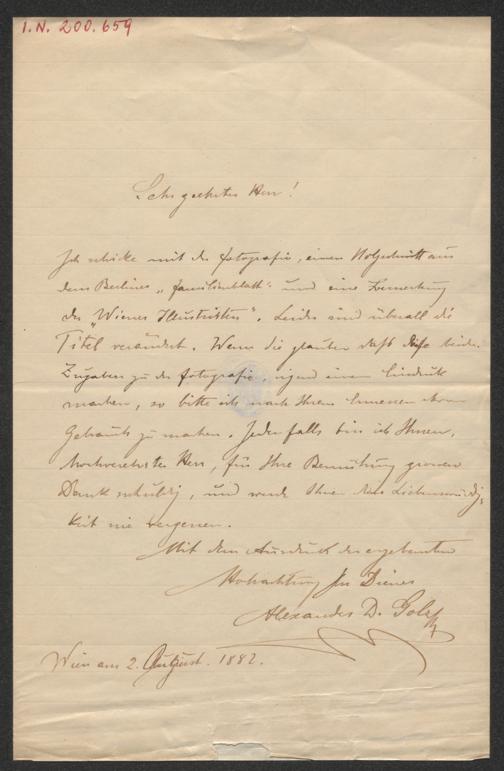 I.N. 200.659
Sehr geehrter Herr!
Ich schicke mit der fotografie, einen Holzschnitt aus
dem Berliner „familienblatt" und eine Bemerkung
der „Wiener Illustrirten". Leider sind überall die
Titel verändert. Wenn die glauben daß diese beiden
Zugaben zu der fotografie, irgend einen Eindruck
machen, so bitte ich nach Ihrem Ermessen davon
Gebrauch zu machen. Jedenfalls bin ich Ihnen,
hochverehrter Herr, für Ihre Bemühung grossen
Dank schuldig, und werde Ihnen diese Liebenswürdig-
keit nie vergessen.
Mit dem Ausdruck der ergebensten
Hochachtung Ihr Diener
Alexander D. Goltz
Wien am 2. August. 1882.